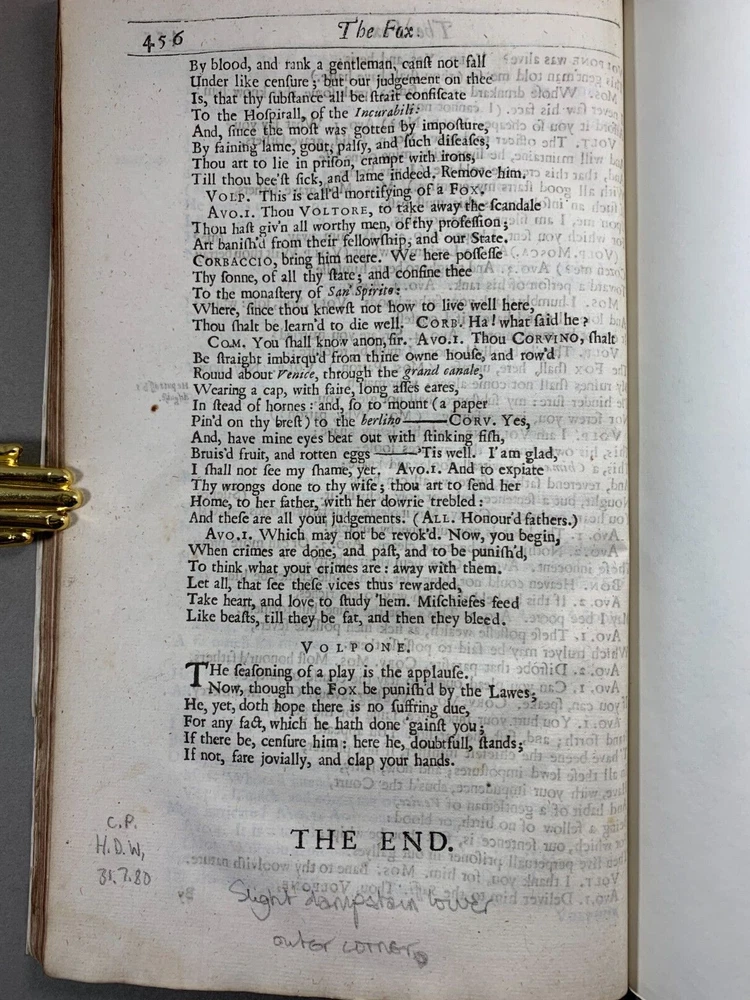 456
The Fox
By blood, and rank a gentleman, canſt not fall
Under like cenſure; but our judgement on thee
Is, that thy ſubſtance all be ſtrait confiſcate
To the Hoſpitall, of the Incurabili:
And, ſince the moſt was gotten by impoſture,
By faining lame, gout, palſy, and ſuch diſeaſes,
Thou art to lie in priſon, crampt with irons,
Till thou bee'ſt ſick, and lame indeed. Remove him.
VOLP. This is call'd mortifying of a FOX.
AVO.1. Thou VOLTORE, to take away the ſcandale
Thou haſt giv'n all worthy men, of thy profeſſion;
Art baniſh'd from their fellowſhip, and our State.
CORBACCIO, bring him neere. We here poſſeſſe
Thy ſonne, of all thy ſtate; and confine thee
To the monaſtery of San' Spirito:
Where, ſince thou knewſt not how to live well here,
Thou ſhalt be learn'd to die well. CORB. Ha! what ſaid he?
COM. You ſhall know anon, ſir. AVO.1. Thou CORVINO, ſhalt
Be ſtraight imbarqu'd from thine owne houſe, and row'd
Round about Venice, through the grand canale,
Wearing a cap, with faire, long aſſes eares,
In ſtead of hornes: and, ſo to mount (a paper
Pin'd on thy breſt) to the berlino——CORV. Yes,
And, have mine eyes beat out with ſtinking fiſh,
Bruis'd fruit, and rotten eggs——'Tis well. I'am glad,
I ſhall not ſee my ſhame, yet. AVO.1. And to expiate
Thy wrongs done to thy wife; thou art to ſend her
Home, to her father, with her dowrie trebled:
And theſe are all your judgements. (ALL. Honour'd fathers.)
AVO.1. Which may not be revok'd. Now, you begin,
When crimes are done, and paſt, and to be puniſh'd,
To think what your crimes are: away with them.
Let all, that ſee theſe vices thus rewarded,
Take heart, and love to ſtudy 'hem. Miſchiefes feed
Like beaſts, till they be fat, and then they bleed.
VOLPONE.
THe ſeaſoning of a play is the applauſe.
Now, though the FOX be puniſh'd by the Lawes,
He, yet, doth hope there is no ſuffring due,
For any fact, which he hath done 'gainſt you;
If there be, cenſure him: here he, doubtfull, ſtands;
If not, fare jovially, and clap your hands.
THE END.
C.P.
H.D.W,
31.7.80
Slight dampstain lower
outer corner